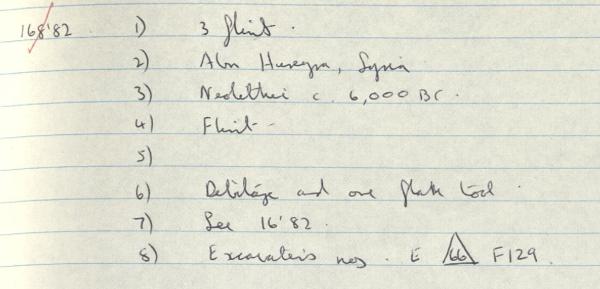 168'82 1) 3 flint.
2) Abu Hureyra, Syria
3) Neolithic c. 6,000 BC.
4) Flint
5)
6) Debitage and one flake tool.
7) See 16'82.
8) Excavators nos. E 66 F129.